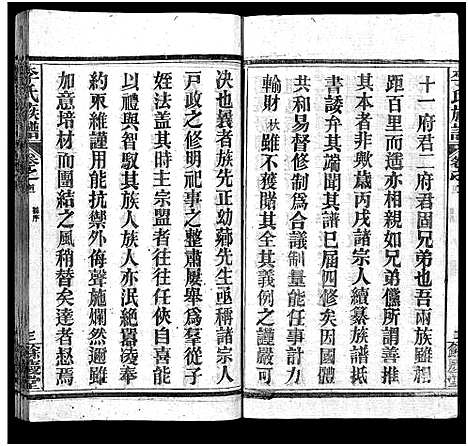 李氏族譜
十一府君二府君固兄弟也吾兩族雖相
距百里而遥亦相親如兄弟儻所謂善推
其本者非歟歲丙戌諸宗人續纂族譜抵
書諉弁其端聞其譜已屆四修矣因國體
共和易督修制爲合議制量能任事計力
輸財秋雖不獲贍其全其義例之謹嚴可
三餘慶堂
李氏族譜
卷之首
譜序
決也曩者族先正幼蘅先生亟稱諸宗人
戸政之修明祀事之整肅屢舉爲羣從子
姪法蓋其時主宗盟者往往任俠自喜能
以禮與智馭其族人族人亦泯競囂淩奉
約束維謹用能抗禦外侮聲施爛然邇雖
加意培材而團結之風稍替矣達者惄焉
三餘慶堂